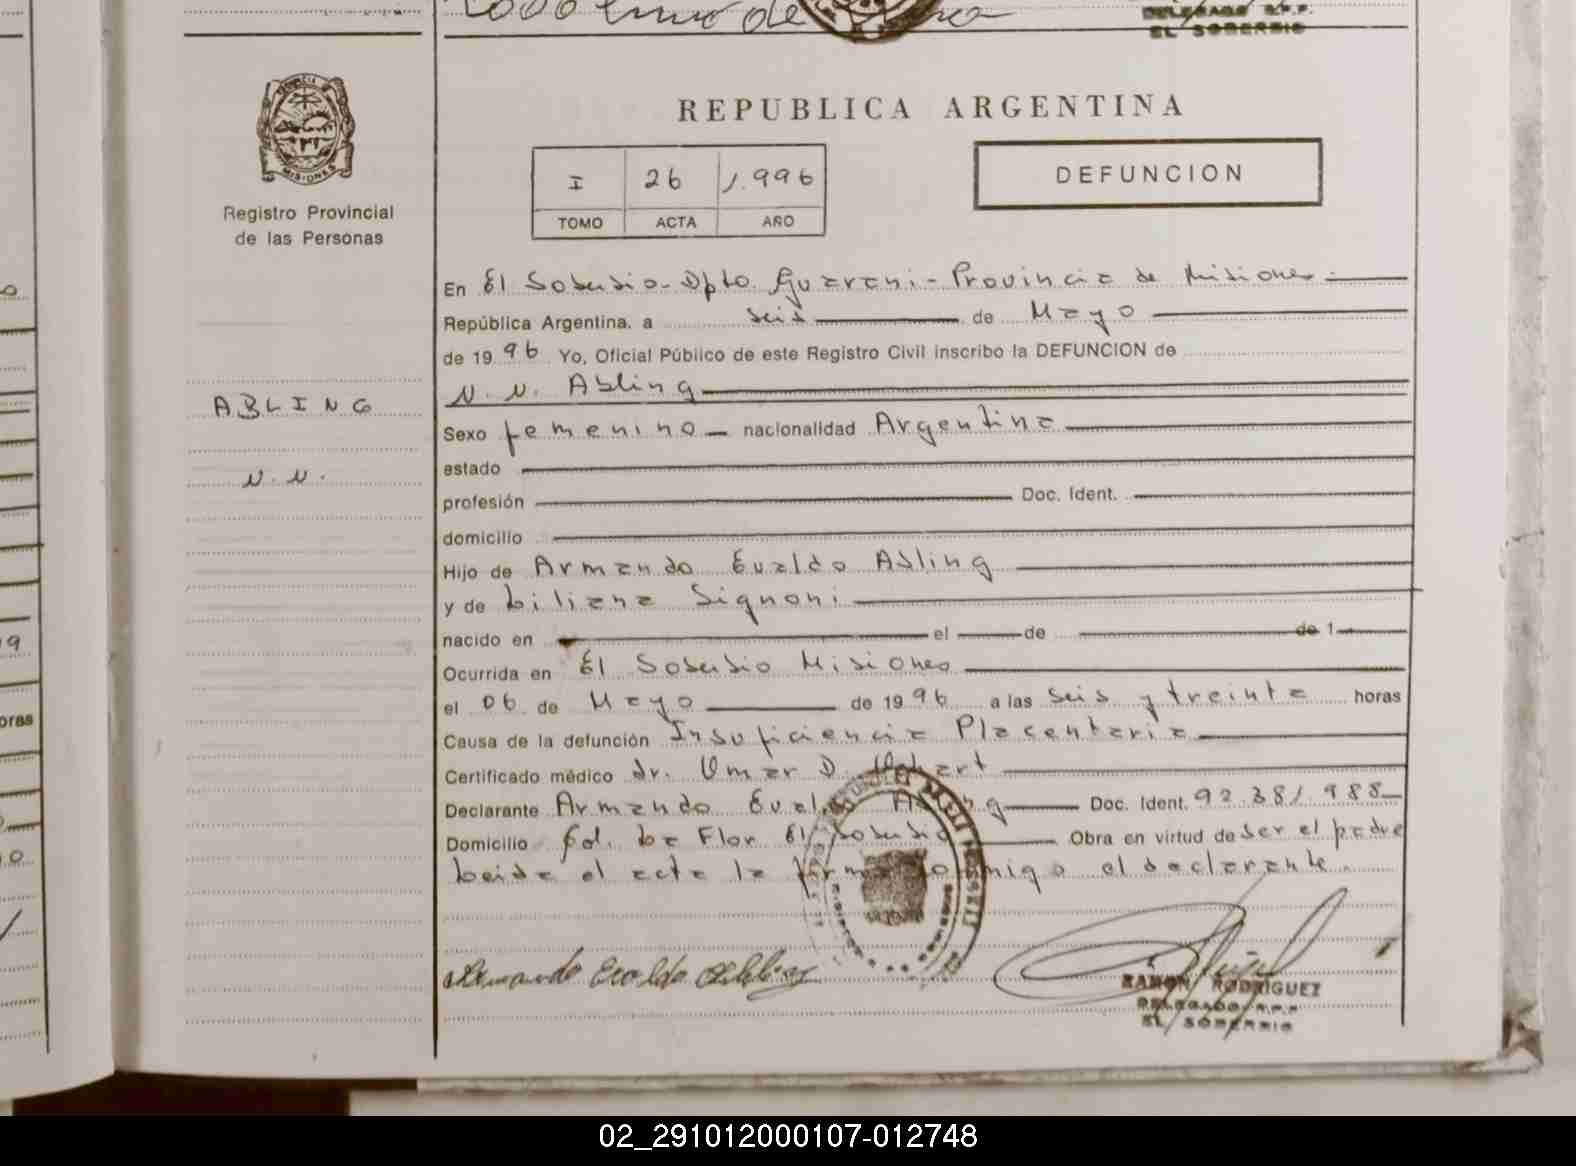 DELEGADO R.P.P.
EL SOBERBIO
PROVINCIA DE
MISIONES
Registro Provincial
de las Personas
REPUBLICA ARGENTINA
I 26 1.996
TOMO ACTA AÑO
DEFUNCION
En El Soberbio - Dpto. Guarani - Provincia de Misiones
República Argentina, a seis de Mayo
de 1996 Yo, Oficial Público de este Registro Civil inscribo la DEFUNCION de
N. N. Abling
ABLING
N. N.
Sexo femenino nacionalidad Argentina
estado
profesión Doc. Ident.
domicilio
Hijo de Armando Evaldo Abling
y de Liliana Signoni
nacido en el de de 1
Ocurrida en El Soberbio Misiones
el 06 de Mayo de 1996 a las seis y treinta horas
Causa de la defunción Insuficiencia Placentaria
Certificado médico dr. Omar D.
Declarante Armando Evaldo Abling Doc. Ident. 92.381.988
Domicilio Col. La Flor El Soberbio Obra en virtud de ser el padre
Leida el acta la firma conmigo el declarante.
Armando Evaldo Abling
RAMON RODRIGUEZ
DELEGADO R.P.P.
EL SOBERBIO
02_291012000107-012748